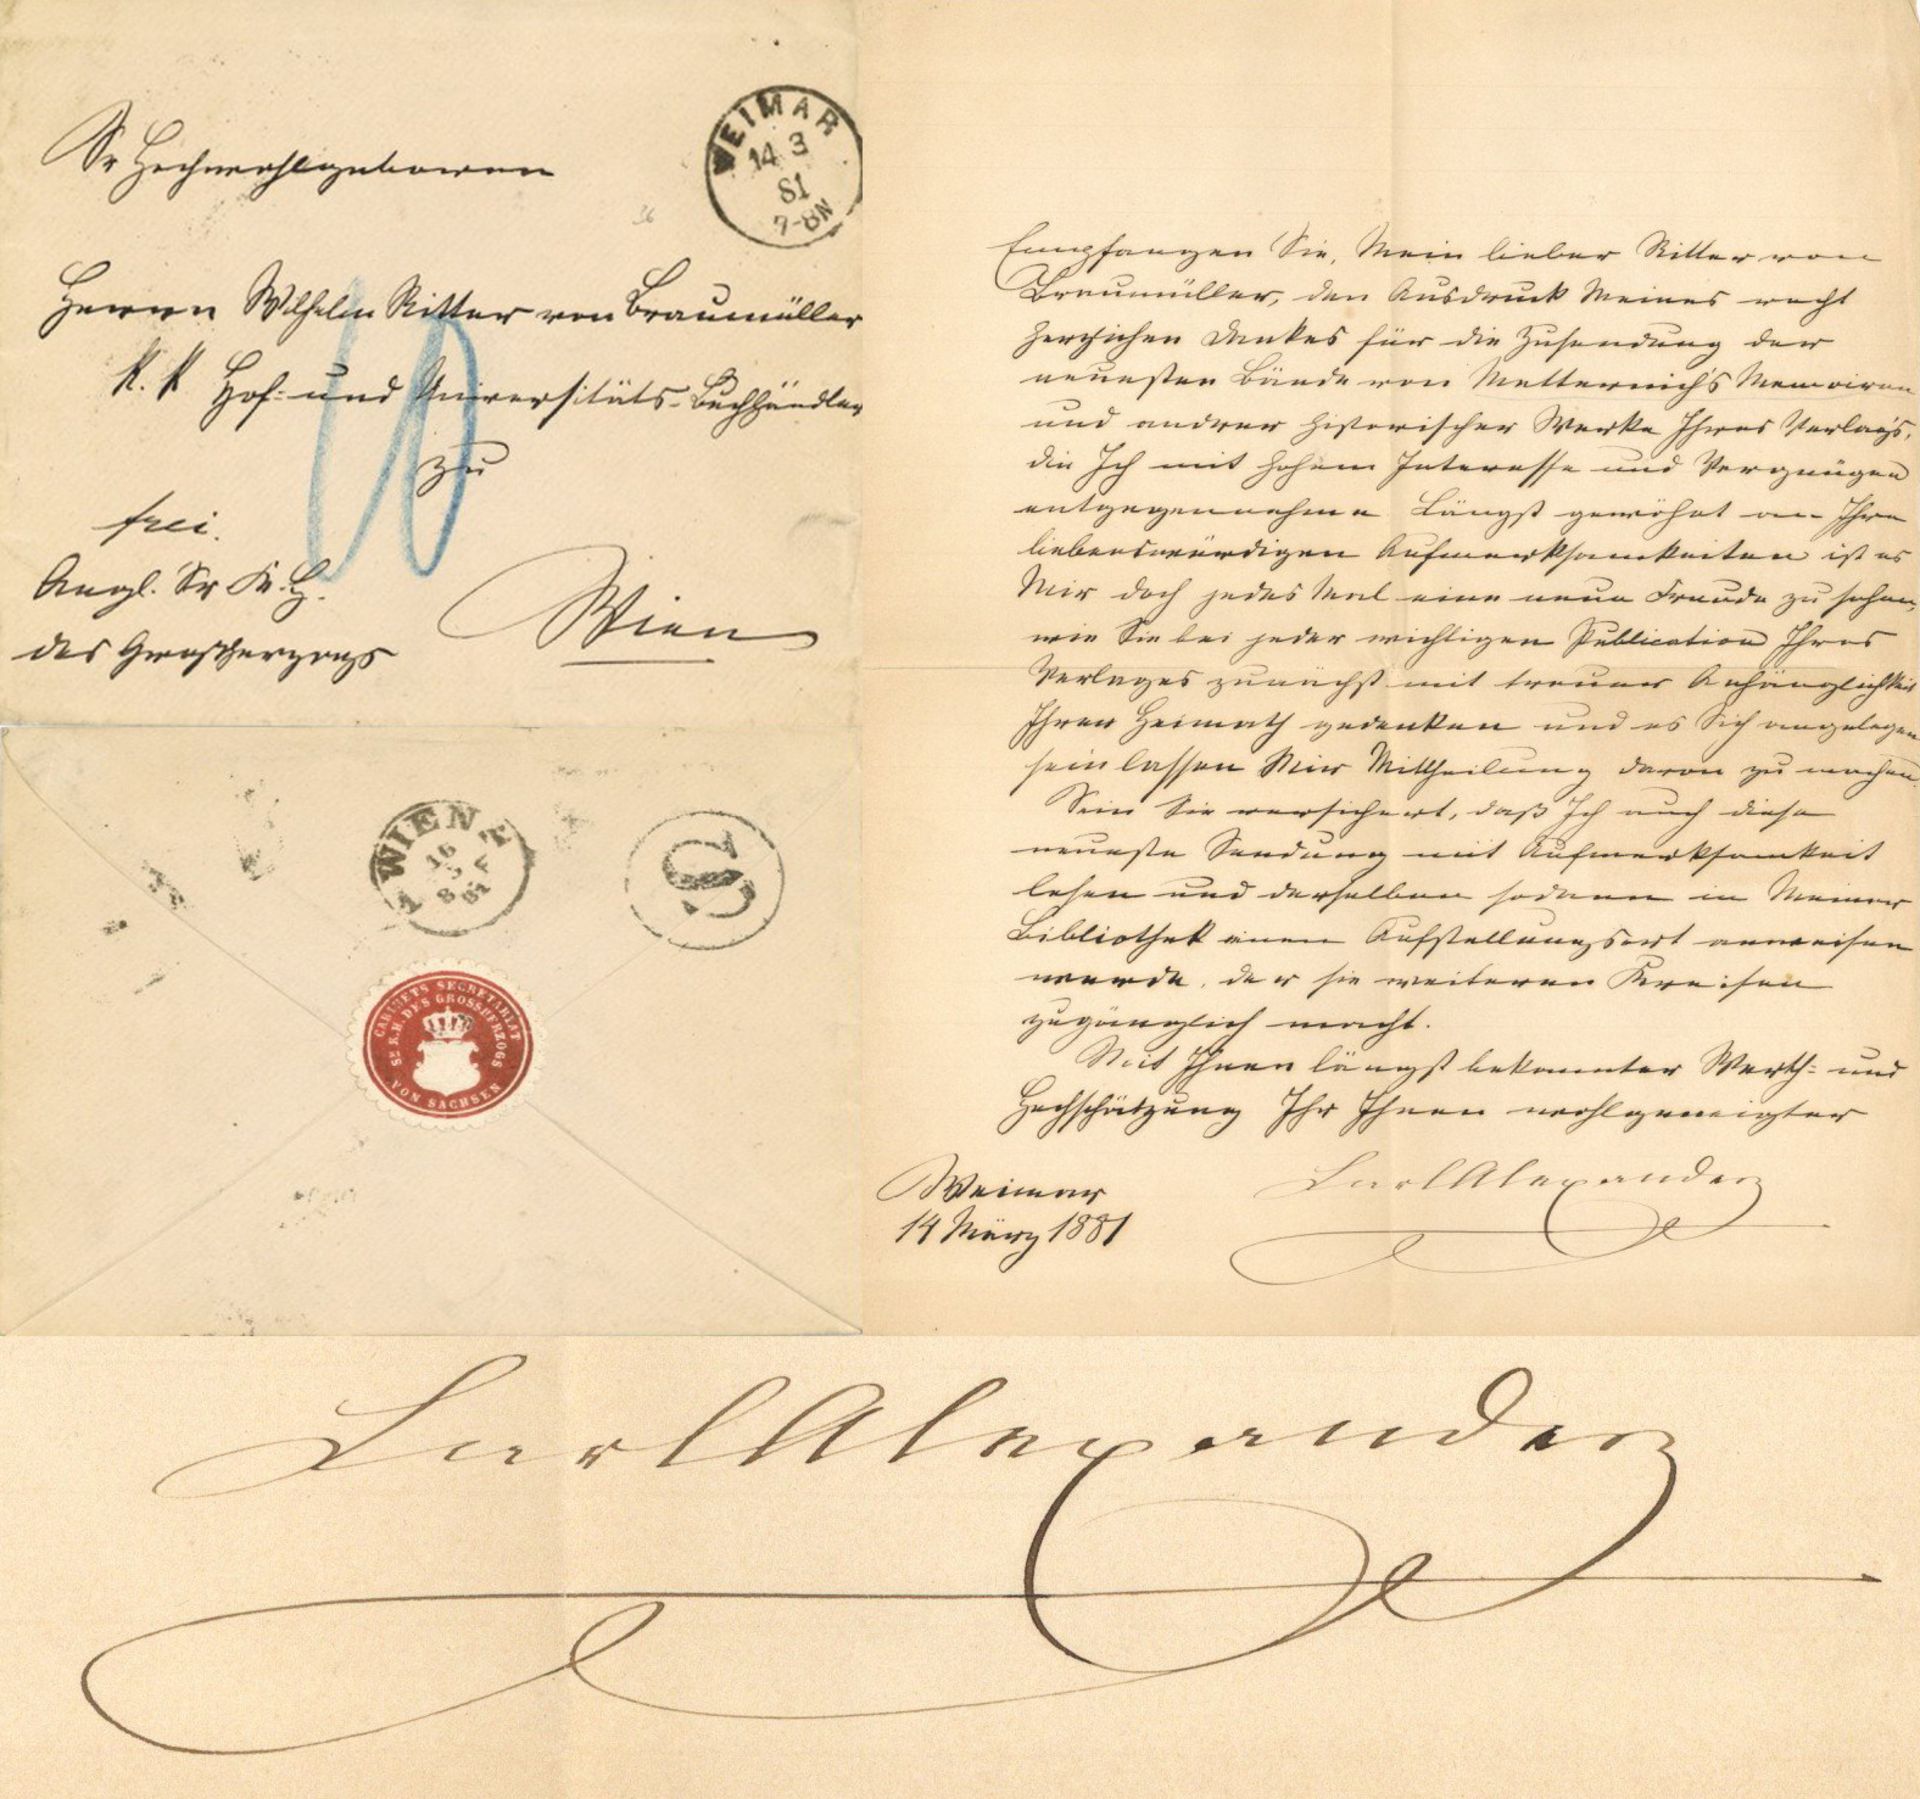 Sr Hochwohlgeboren
WEIMAR
14 3
81
7-8N
36
Herrn Wilhelm Ritter von Braumüller
K. K Hof- und Universitäts-Buchhändler
zu
frei.
Angl. Sr K. H.
des Großherzogs
Wien
WIEN
1
16
3
8
81
S
CABINETS SECRETARIAT
Sr. K. H. DES GROSSHERZOGS
VON SACHSEN
Empfangen Sie, Mein lieber Ritter von
Braumüller, den Ausdruck Meines recht
herzlichen Dankes für die Zusendung der
neuesten Bände von Metternich's Memoiren
und andrer historischer Werke Ihres Verlag's,
die Ich mit hohem Interesse und Vergnügen
entgegennehme. Längst gewöhnt an Ihre
liebenswürdigen Aufmerksamkeiten ist es
Mir doch jedes Mal eine neue Freude zu sehen,
wie Sie bei jeder wichtigen Publication Ihres
Verlages zunächst mit treuer Anhänglichkeit
Ihrer Heimath gedenken und es Sich angelegen
sein lassen Mir Mittheilung davon zu machen.
Sein Sie versichert, daß Ich auch diese
neueste Sendung mit Aufmerksamkeit
lesen und derselben sodann in Meiner
Bibliothek einen Aufstellungsort anweisen
werde, der sie weiteren Kreisen
zugänglich macht.
Mit Ihnen längst bekannter Werth- und
Hochschätzung Ihr Ihnen wohlgeneigter
Carl Alexander
Weimar
14 März 1881
Carl Alexander